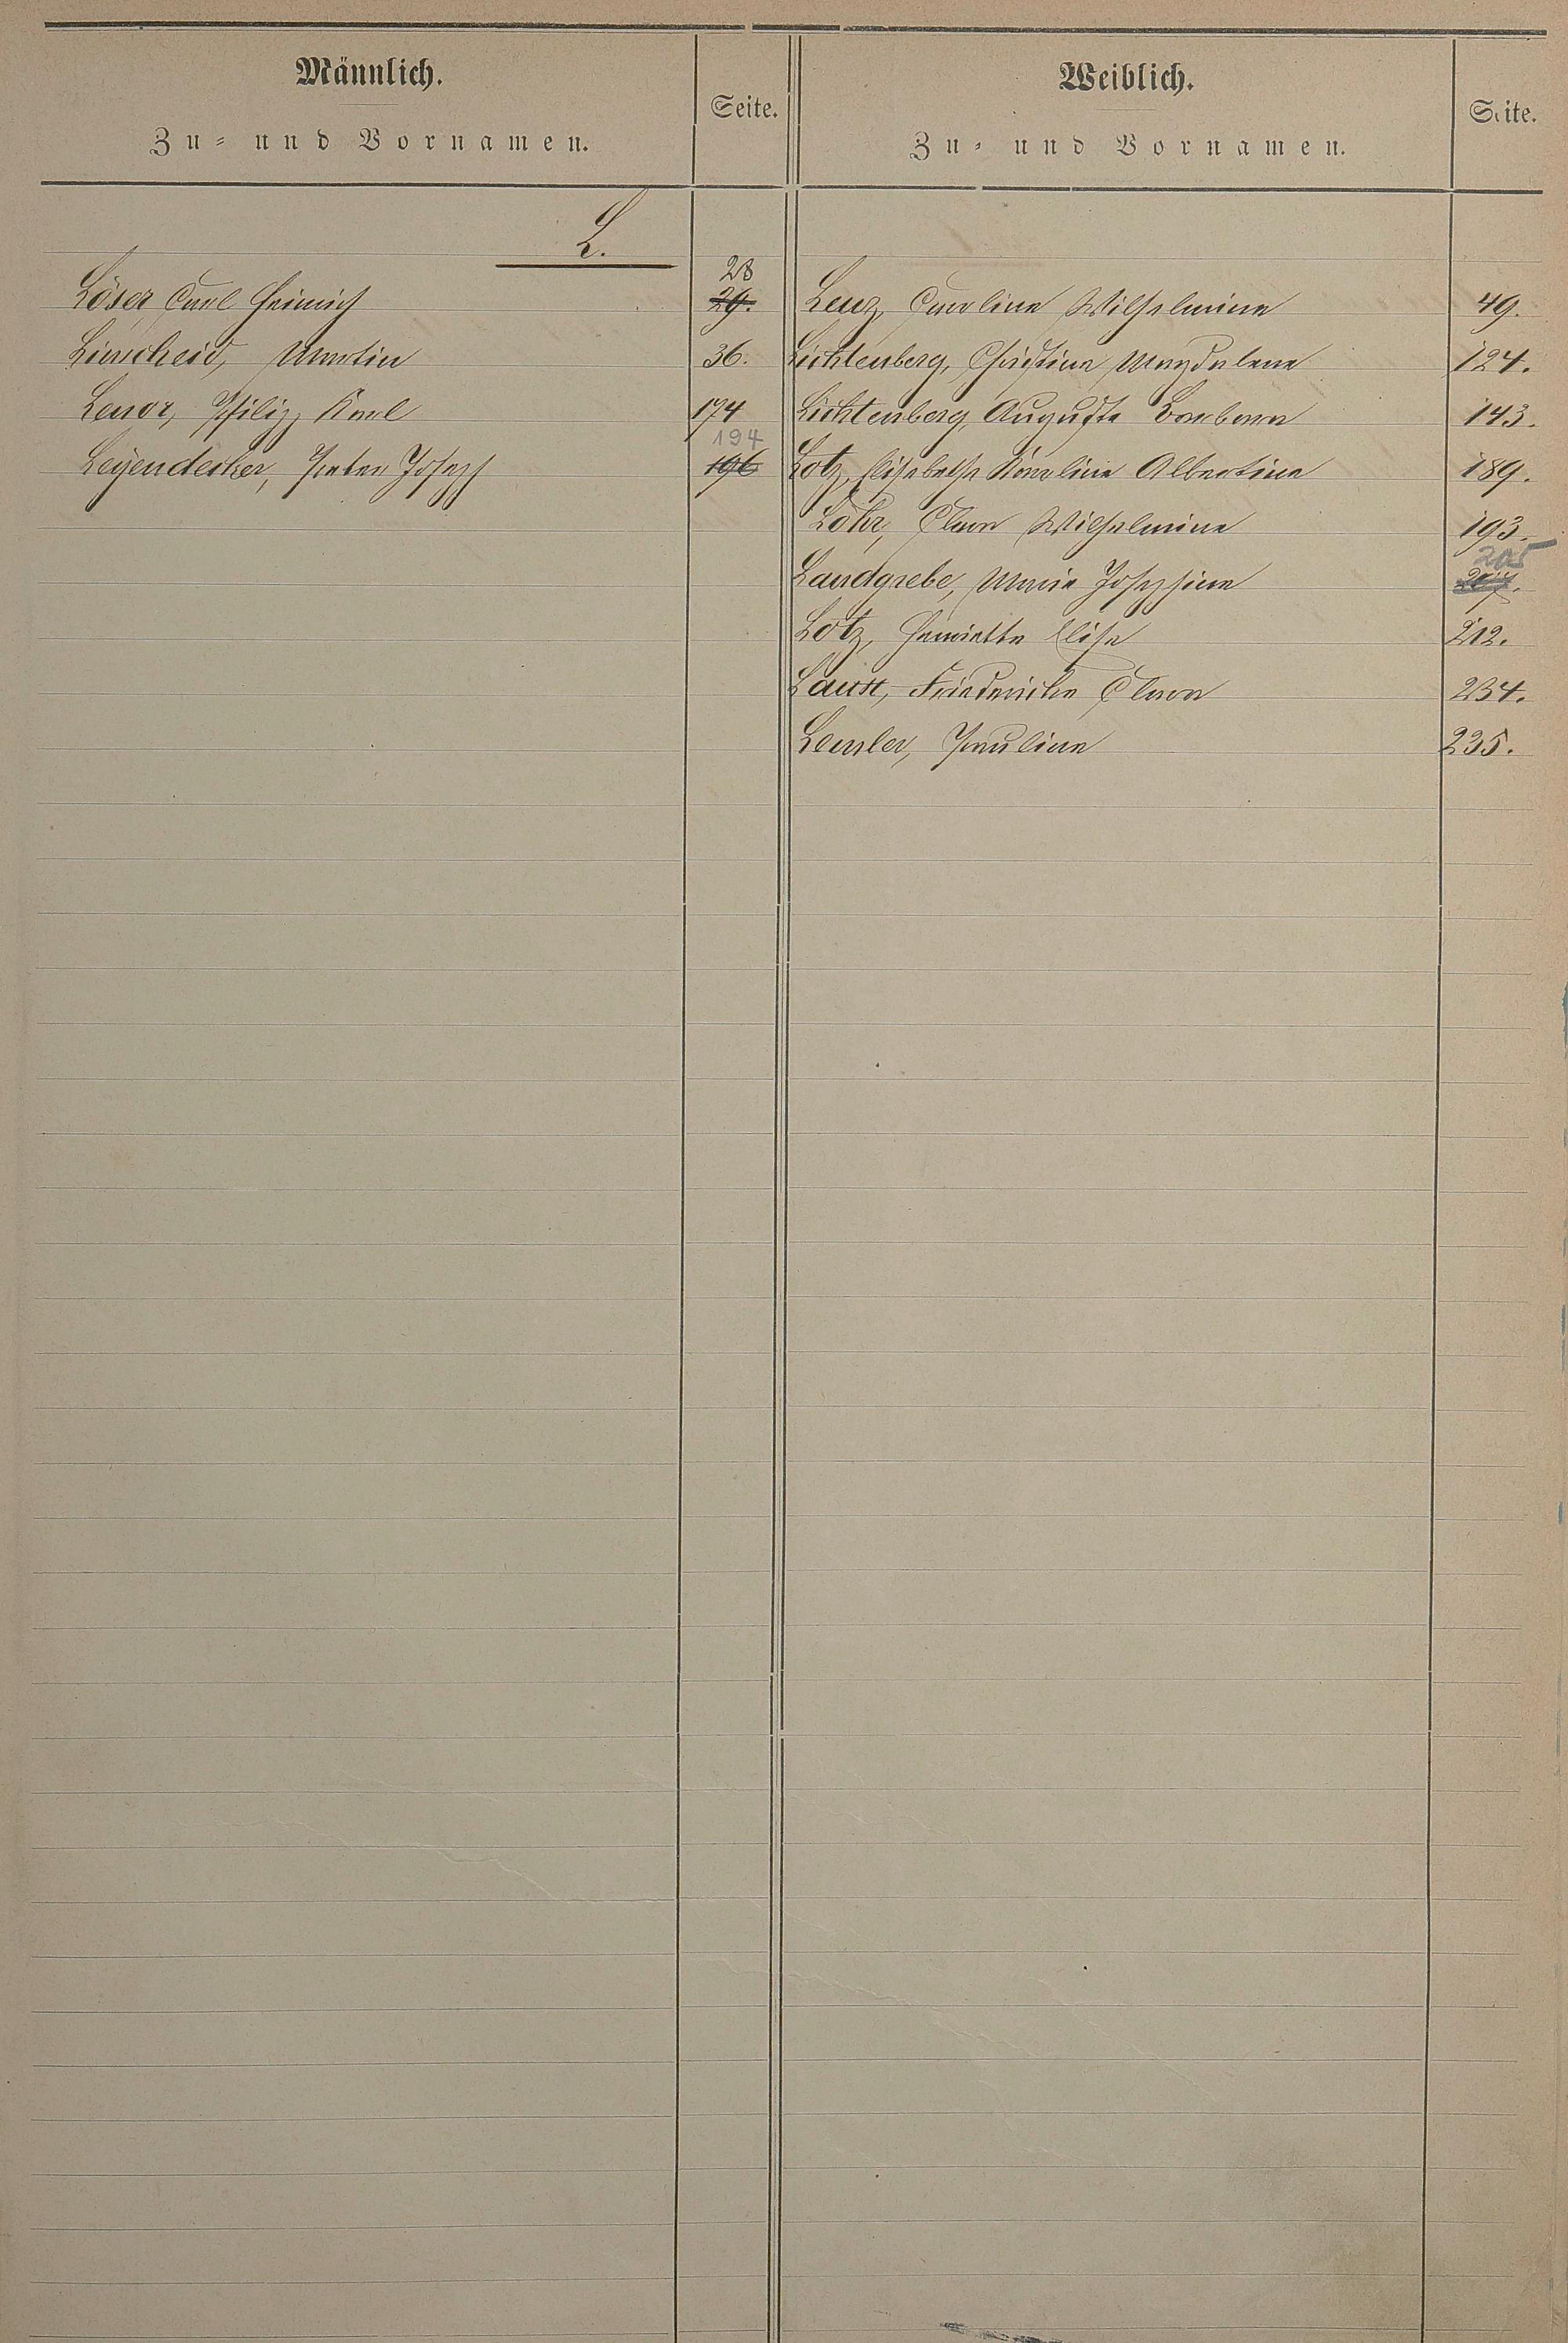 Männlich.
Zu- und Vornamen.
Seite.
Weiblich.
Zu- und Vornamen.
Seite.
L.
Löser Carl Heinrich 28 29.
Linscheid, Martin 36.
Lenor, Philipp Karl 174
Leyendecker, Peter Joseph 194 196
Lenz, Caroline Wilhelmine 49.
Lichtenberg, Christine Magdalene 124.
Lichtenberg, Auguste Barbara 143.
Lotz, Elisabethe Karoline Albertine 189.
Löhr, Clara Wilhelmine 193.
Landgrebe, Maria Josephine 205
Lotz, Henriette Elise 212.
Laux, Friedericke Clara 234.
Lensler, Pauline 235.